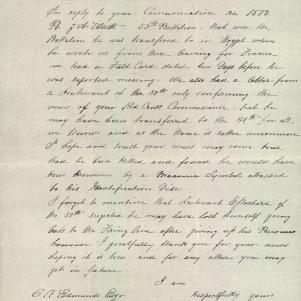 In reply to your Communication re 1573
Pt. J. A. Elliott - 50th Battalion. that was the
Battalion he was transferred to in Egypt when
he wrote us from there leaving for France
we had a Field Card dated two days before he
was reported missing. We also had a letter from
a Lieutenant of the 50th only confirming the
news of your Red Cross Commissioner, but he
may have been transferred to the 48th for all
we know and as the Name is rather uncommon
I hope and trust your news may come true
had he been killed and found he would have
been known by a Masonic Symbol attached
to his Identification Disc
I forgot to mention that Lieutenant
the 50th regretted he may have lost himself going
back to the Firing Line after giving up his Prisoners
however I gratefully thank you for your news
hoping it is true and for any other you may
get in future
I am
Respectfully yours
C. A. Edmunds Esqr